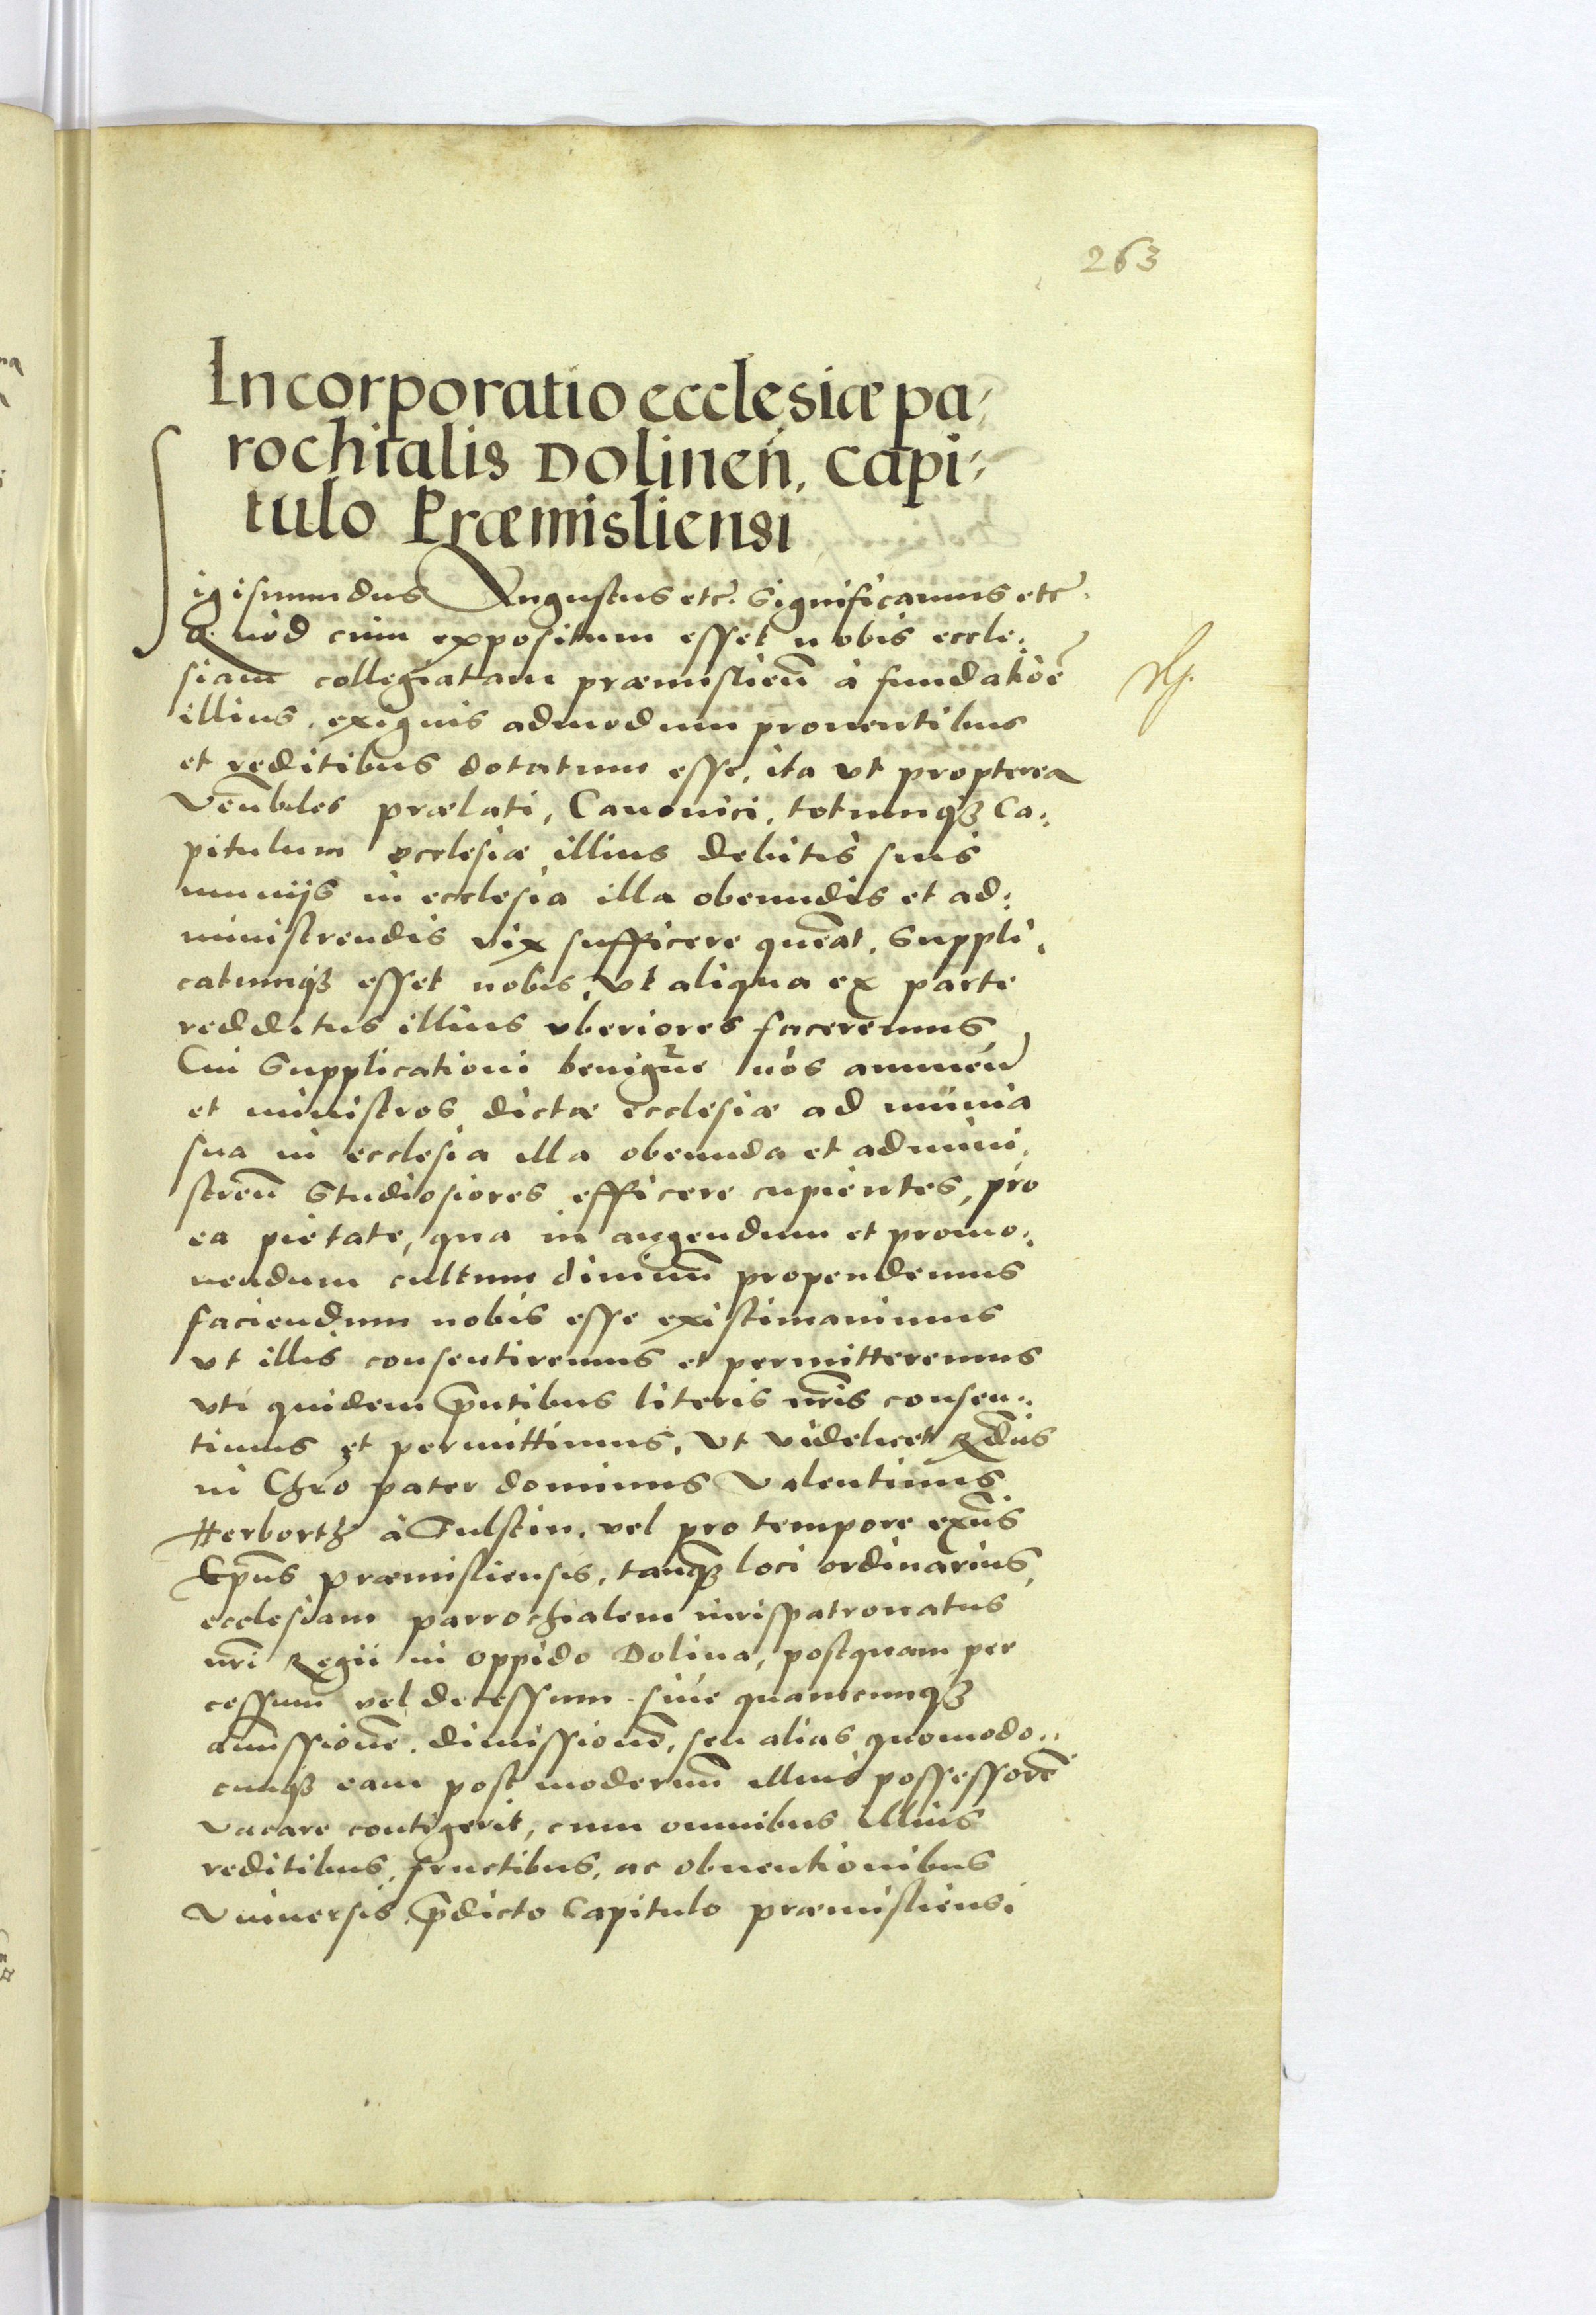 263
Incorporatio ecclesiæ pa-
rochialis Dolinen̄. Capi-
tulo Præmisliensi
Sigismundus Augustus etc. Significamus etc.
Quod cum expositum esset nobis eccle-
siam collegiatam præmislien̄ à fundatiōe
illius, exiguis admodum prouentibus
et reditibus dotatum esse, ita vt propterea
Ven̄biles prælati, Canonici, totumqꝫ Ca-
pitulum ecclesiæ illius debitis suis
munijs in ecclesia illa obeundis et ad-
ministrendis vix sufficere queāt. Suppli-
catumqꝫ esset nobis, vt aliqua ex parte
redditus illius vberiores faceremus
Cui Supplicationi benigne nos annuen̄
et ministros dictæ ecclesiæ ad munia
sua in ecclesia illa obeunda et admini-
stren̄ Studiosiores efficere cupientes, pro
ea pietate, qua in augendum et promo-
uendum cultum diuinū propendemus
faciendum nobis esse existimauimus
vt illis consentiremus et permitteremus
vti quidem p̄ntibus literis nr̄is consen-
timus et permittimus, Vt videlicet Rd̄us
in Chr̄o pater dominus Valentinus
Herborth à Fulstin, vel pro tempore exn̄s
Ep̄us præmisliensis, tanqꝫ loci ordinarius,
ecclesiam parrochialem iurispatronatus
nr̄i Regii in oppido Dolina, postquam per
cessum vel decessum siue quamcunqꝫ
amissionē, dimissionē, seu alias quomodo-
cunqꝫ eam post modernū illius possessorē
vacare contigerit, cum omnibus illius
reditibus, fructibus, ac obuentionibus
Vniuersis p̄dicto Capitulo præmisliensi